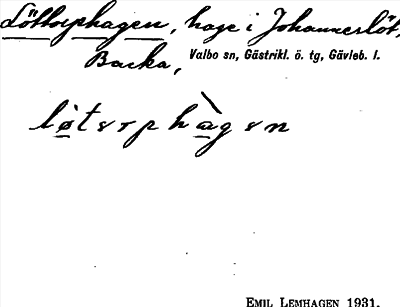 Löttorphagen, hage i Johanneslöt,
Backa, Valbo sn, Gästrikl. ö. tg, Gävleb. l.
EMIL LEMHAGEN 1931.